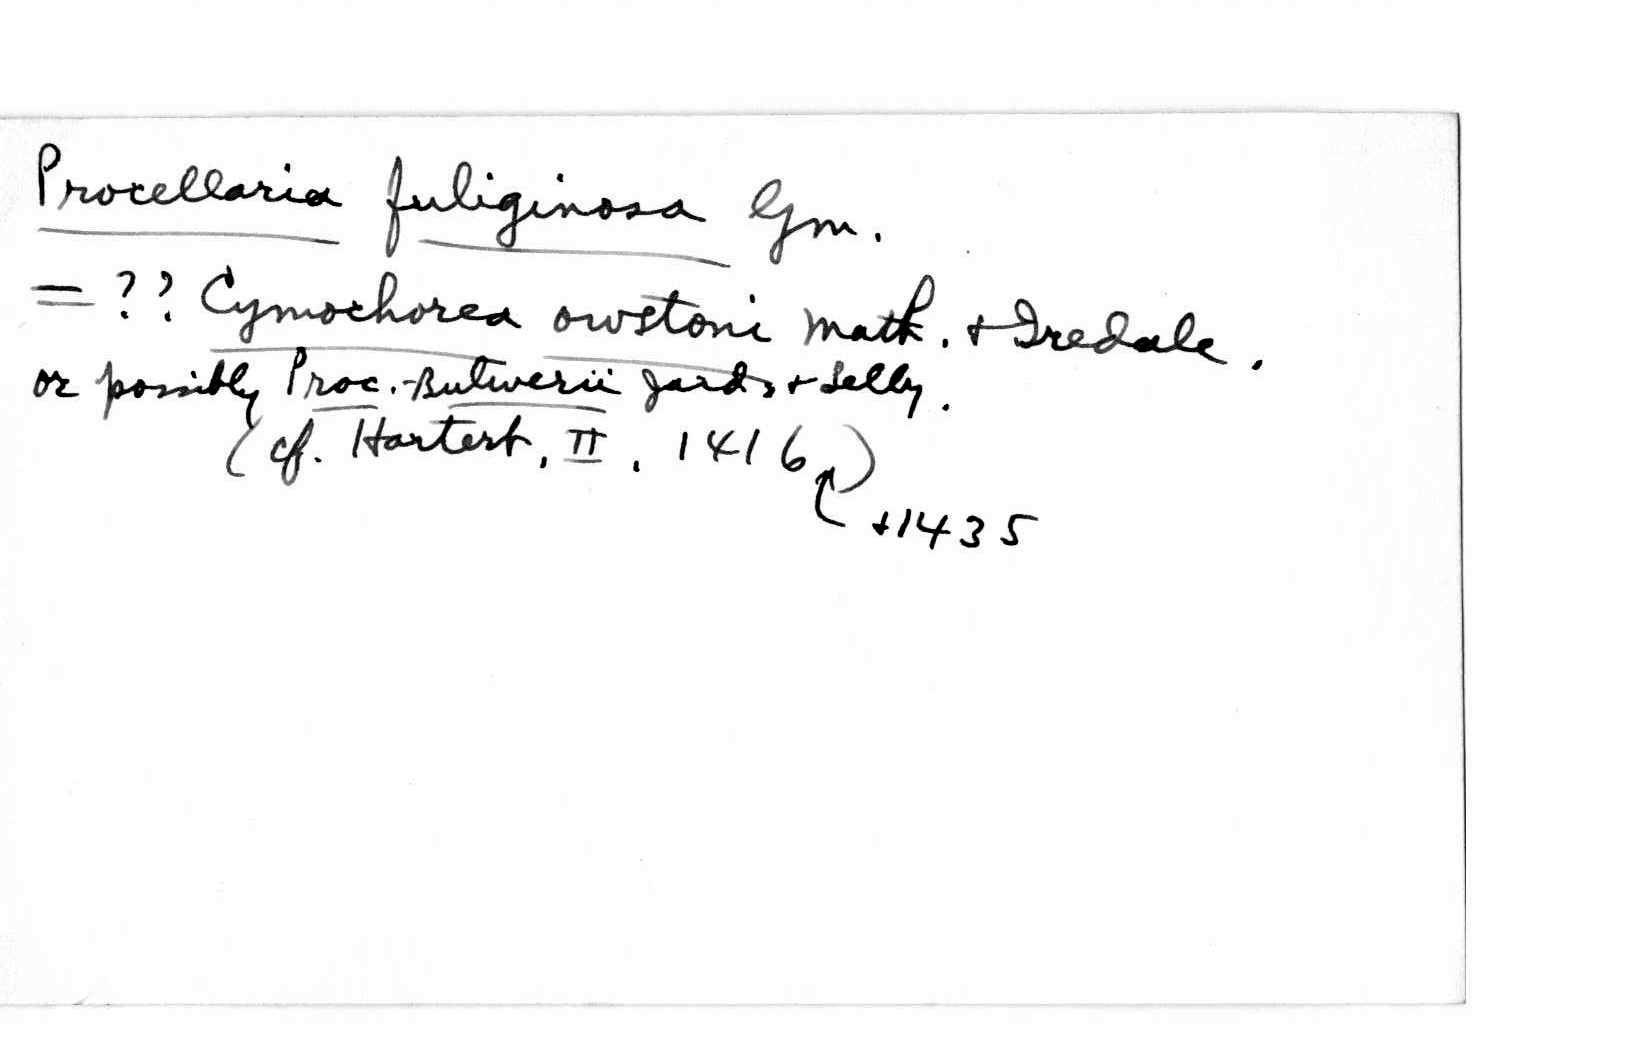 Procellaria fuliginosa Gm.
= ?? Cymochorea owstoni Math. + Iredale.
or possibly Proc. Bulwerii Jard. + Selby.
(cf. Hartert, II, 1416)
+1435